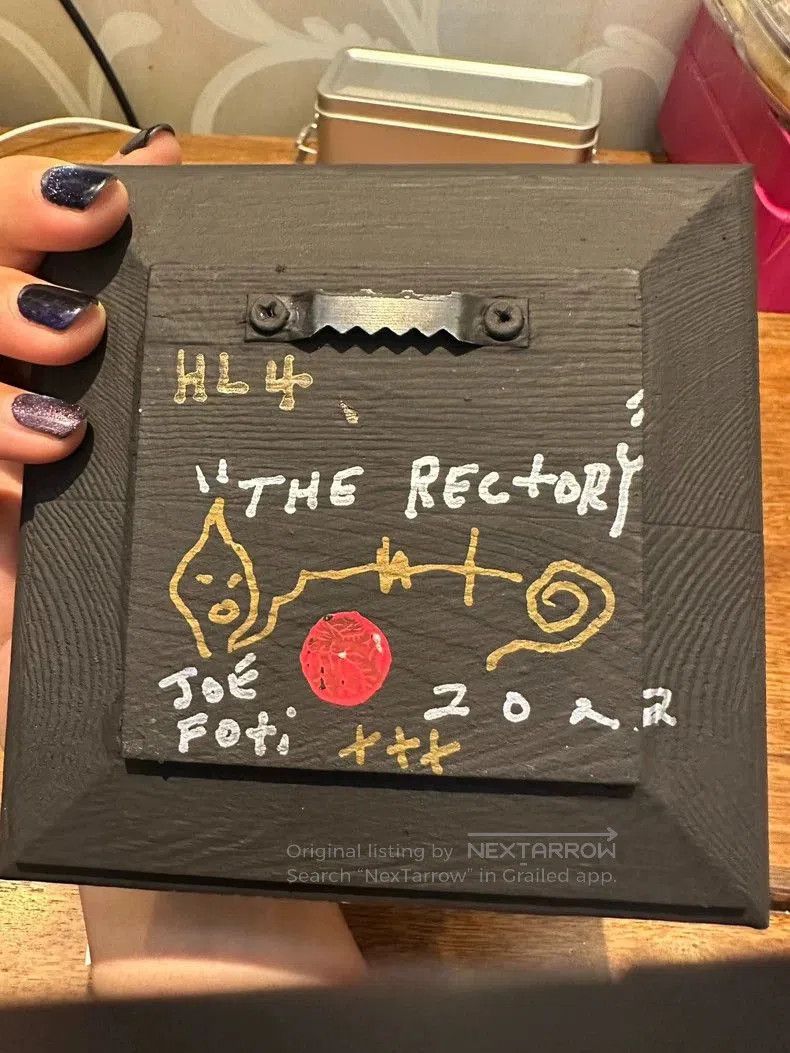 HL4
"THE RECTORY"
JOE
FOTI
2022
+++
Original listing by NEXTARROW
Search "NexTarrow" in Grailed app.